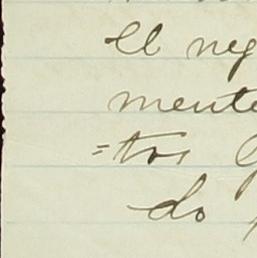 el neg
mente
=tos
do